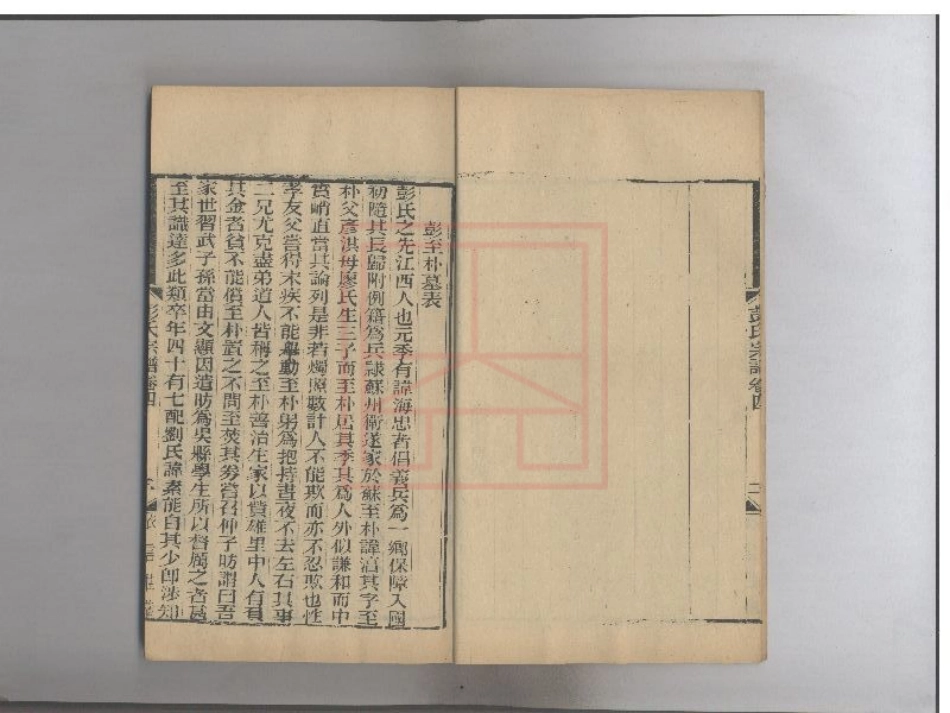 彭氏宗譜卷四
二
彭至朴墓表
彭氏之先江西人也元季有諱海忠者倡義兵爲一鄉保障入國
初隨其長歸附例籍爲兵隸蘇州衛遂家於蘇至朴諱淓其字至
朴父彥洪母廖氏生三子而至朴居其季其爲人外似謙和而中
實峭直當其論列是非若燭照數計人不能欺而亦不忍欺也性
孝友父嘗得末疾不能舉動至朴躬爲抱持晝夜不去左右其事
二兄尤克盡弟道人皆稱之至朴善治生家以貲雄里中人有負
其金者貧不能償至朴置之不問至焚其券嘗召仲子昉謂曰吾
家世習武子孫當由文顯因遣昉爲吳縣學生所以督厲之者甚
至其識達多此類卒年四十有七配劉氏諱素能自其少卽涉知
彭氏宗譜卷四